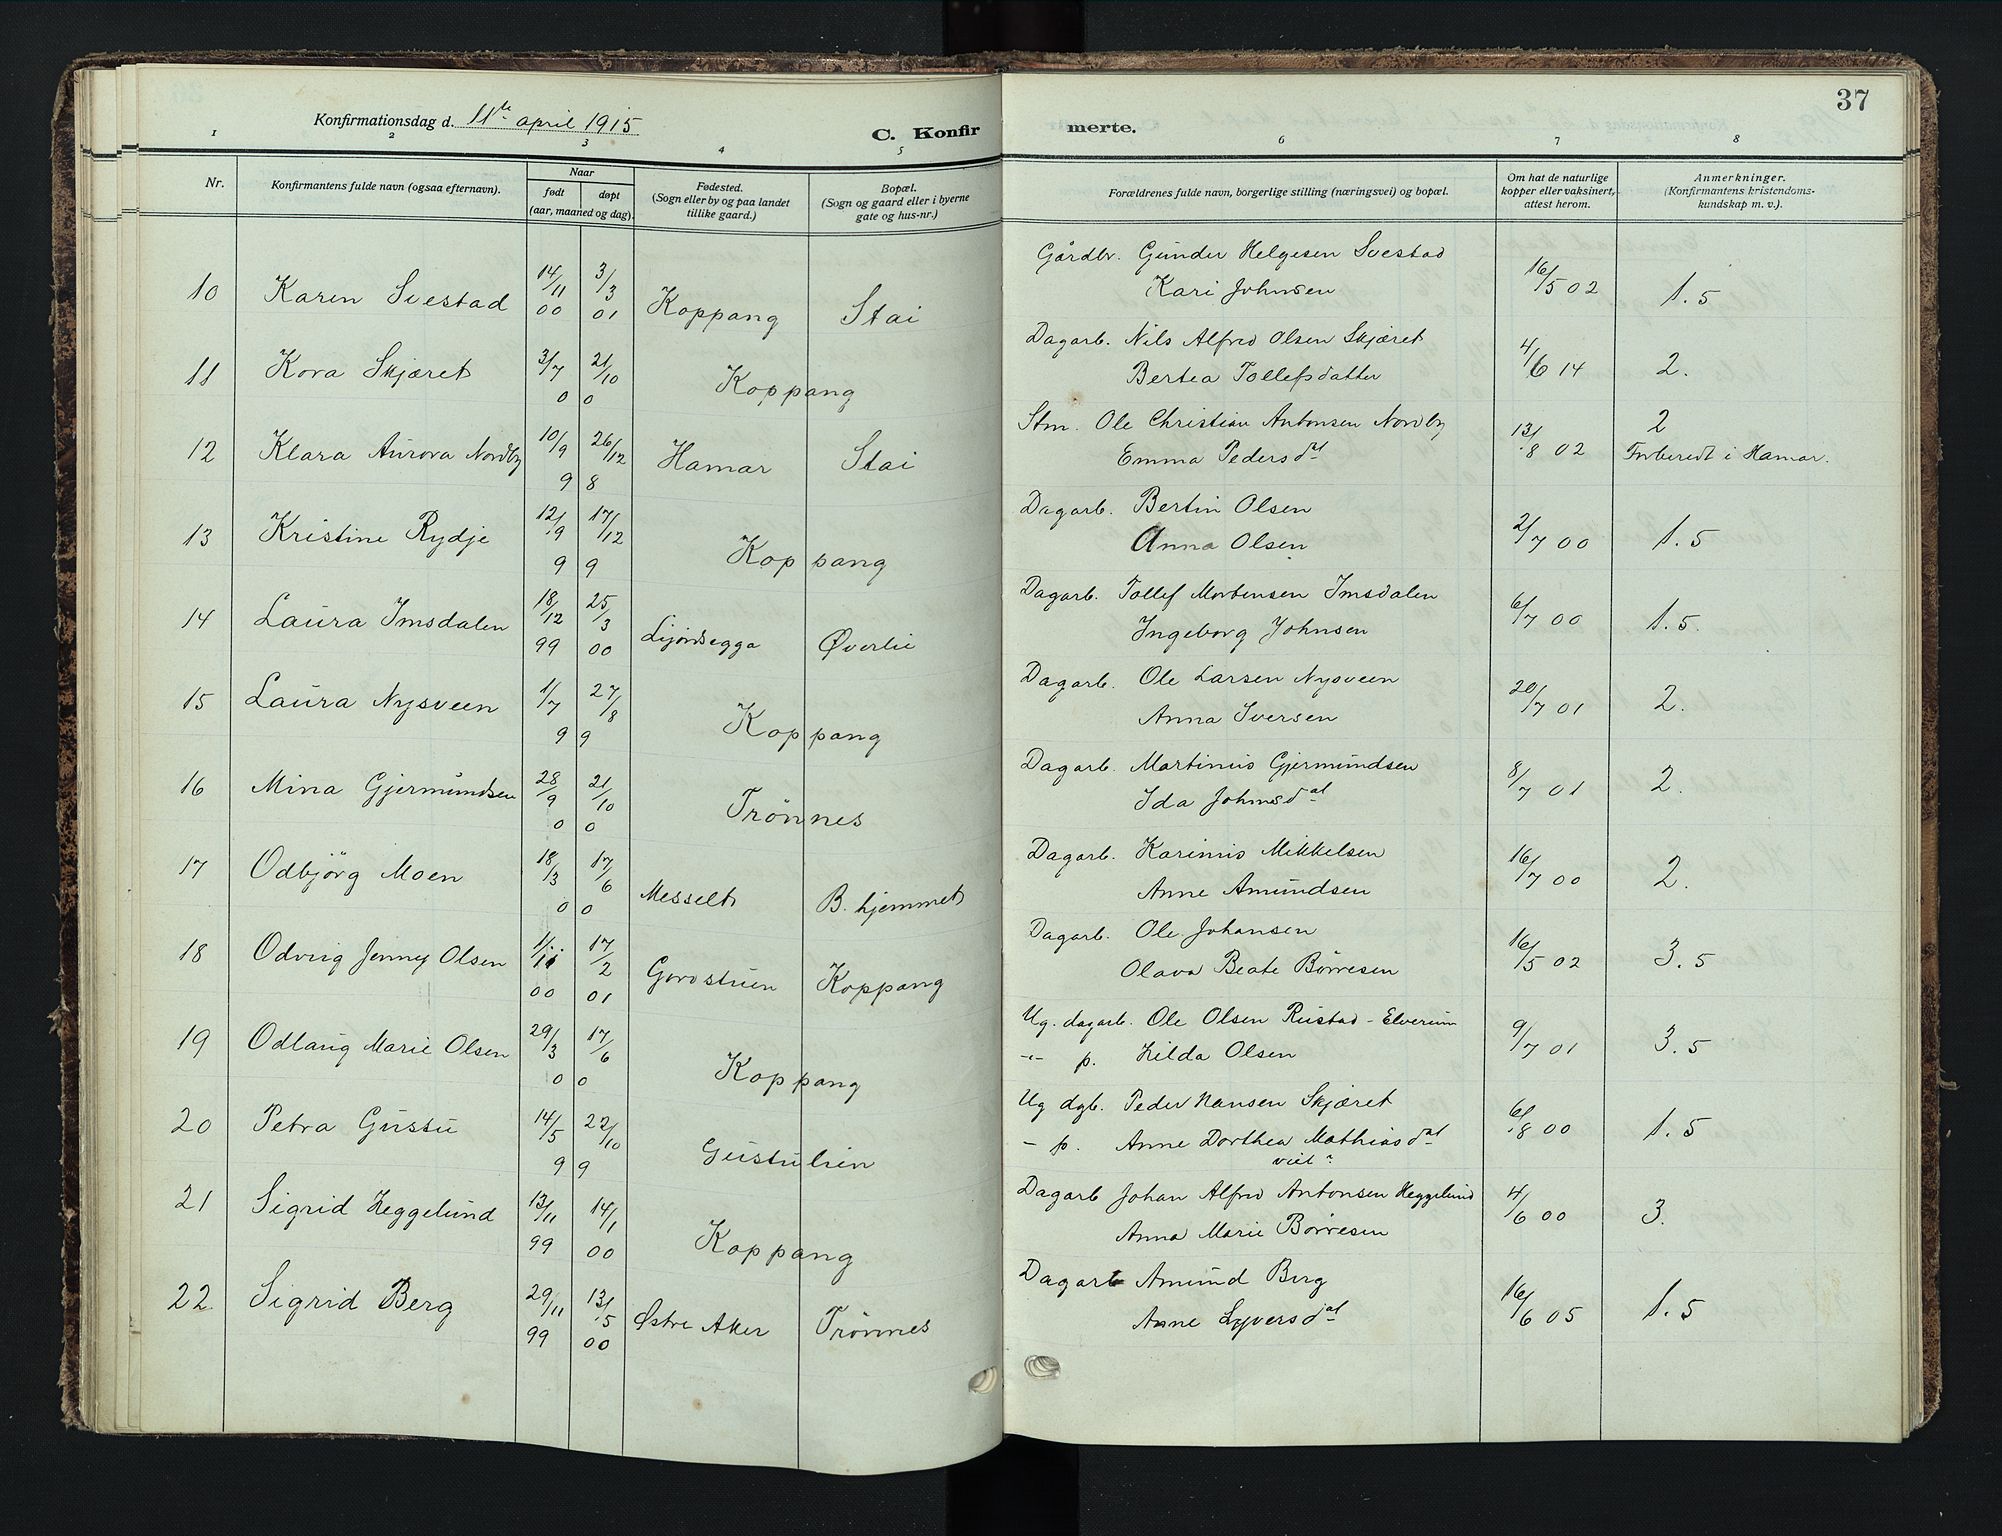 37
Konfirmationsdag d. 11te april 1915
C. Konfirmerte.
1 2 3 4 5 6 7 8
Nr.
Konfirmantens fulde navn (ogsaa efternavn).
Naar
født døpt
(aar, maaned og dag).
Fødested.
(Sogn eller by og paa landet
tillike gaard.)
Bopæl.
(Sogn og gaard eller i byerne
gate og hus-nr.)
Forældrenes fulde navn, borgerlige stilling (næringsvei) og bopæl.
Om hat de naturlige
kopper eller vaksinert,
attest herom.
Anmerkninger.
(Konfirmantens kristendoms-
kundskap m. v.).
10 Karen Svestad 14/11 00 3/3 01 Koppang Stai Gårdbr. Gunder Helgesen Svestad 16/5 02 1.5
Kari Johnsen
11 Kora Skjæret 3/7 21/10 00 Koppang Dagarb. Nils Alfred Olsen Skjæret 4/6 14 2.
Bertea Tollefsdatter
12 Klara Aurora Nordby 10/9 26/12 98 Hamar Stai Stm. Ole Christian Antonsen Nordby 13/8 02 2
Emma Pedersdat Forberedt i Hamar.
13 Kristine Rydje 12/9 17/12 99 Koppang Dagarb. Bertin Olsen 2/7 00 1.5
Anna Olsen
14 Laura Imsdalen 18/12 99 25/3 00 Ljørdsegga Øverlie Dagarb. Tollef Mortensen Imsdalen 6/7 00 1.5.
Ingeborg Johnsen
15 Laura Nysveen 1/7 27/8 99 Koppang Dagarb. Ole Larsen Nysveen 20/7 01 2.
Anna Iversen
16 Mina Gjermundsen 28/9 21/10 00 Trønnes Dagarb. Martinus Gjermundsen 8/7 01 2.
Ida Johnsdat
17 Odbjörg Moen 18/3 17/6 00 Messelt B. hjemmet Dagarb. Karinus Mikkelsen 16/7 00 2.
Anne Amundsen
18 Odvig Jenny Olsen 1/11 00 17/2 01 Gordstuen Koppang Dagarb. Ole Johansen 16/5 02 3.5
Olava Beate Børresen
19 Odlaug Marie Olsen 29/3 17/6 00 Koppang Ug. dagarb. Ole Olsen Rustad - Elverum 9/7 01 3.5
-"- p. Hilda Olsen
20 Petra Gustu 14/5 22/10 99 Gustulien Ug dgb. Peder Hansen Skjæret 6/8 00 1.5
- p. Anne Dorthea Mathiasdat
21 Sigrid Heggelund 13/11 99 14/1 00 Koppang Dagarb Johan Alfred Antonsen Heggelund 4/6 00 3.
Anna Marie Børresen
22. Sigrid Berg 29/11 99 13/5 00 Østre Aker Trønnes Dagarb Amund Berg 16/6 05 1.5
Anne Syversdat